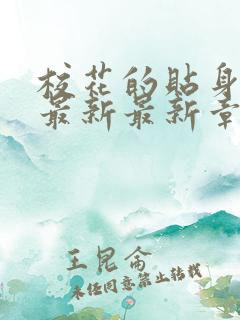 校花的贴身
最新最新章
王昆仑
未经同意禁止转载